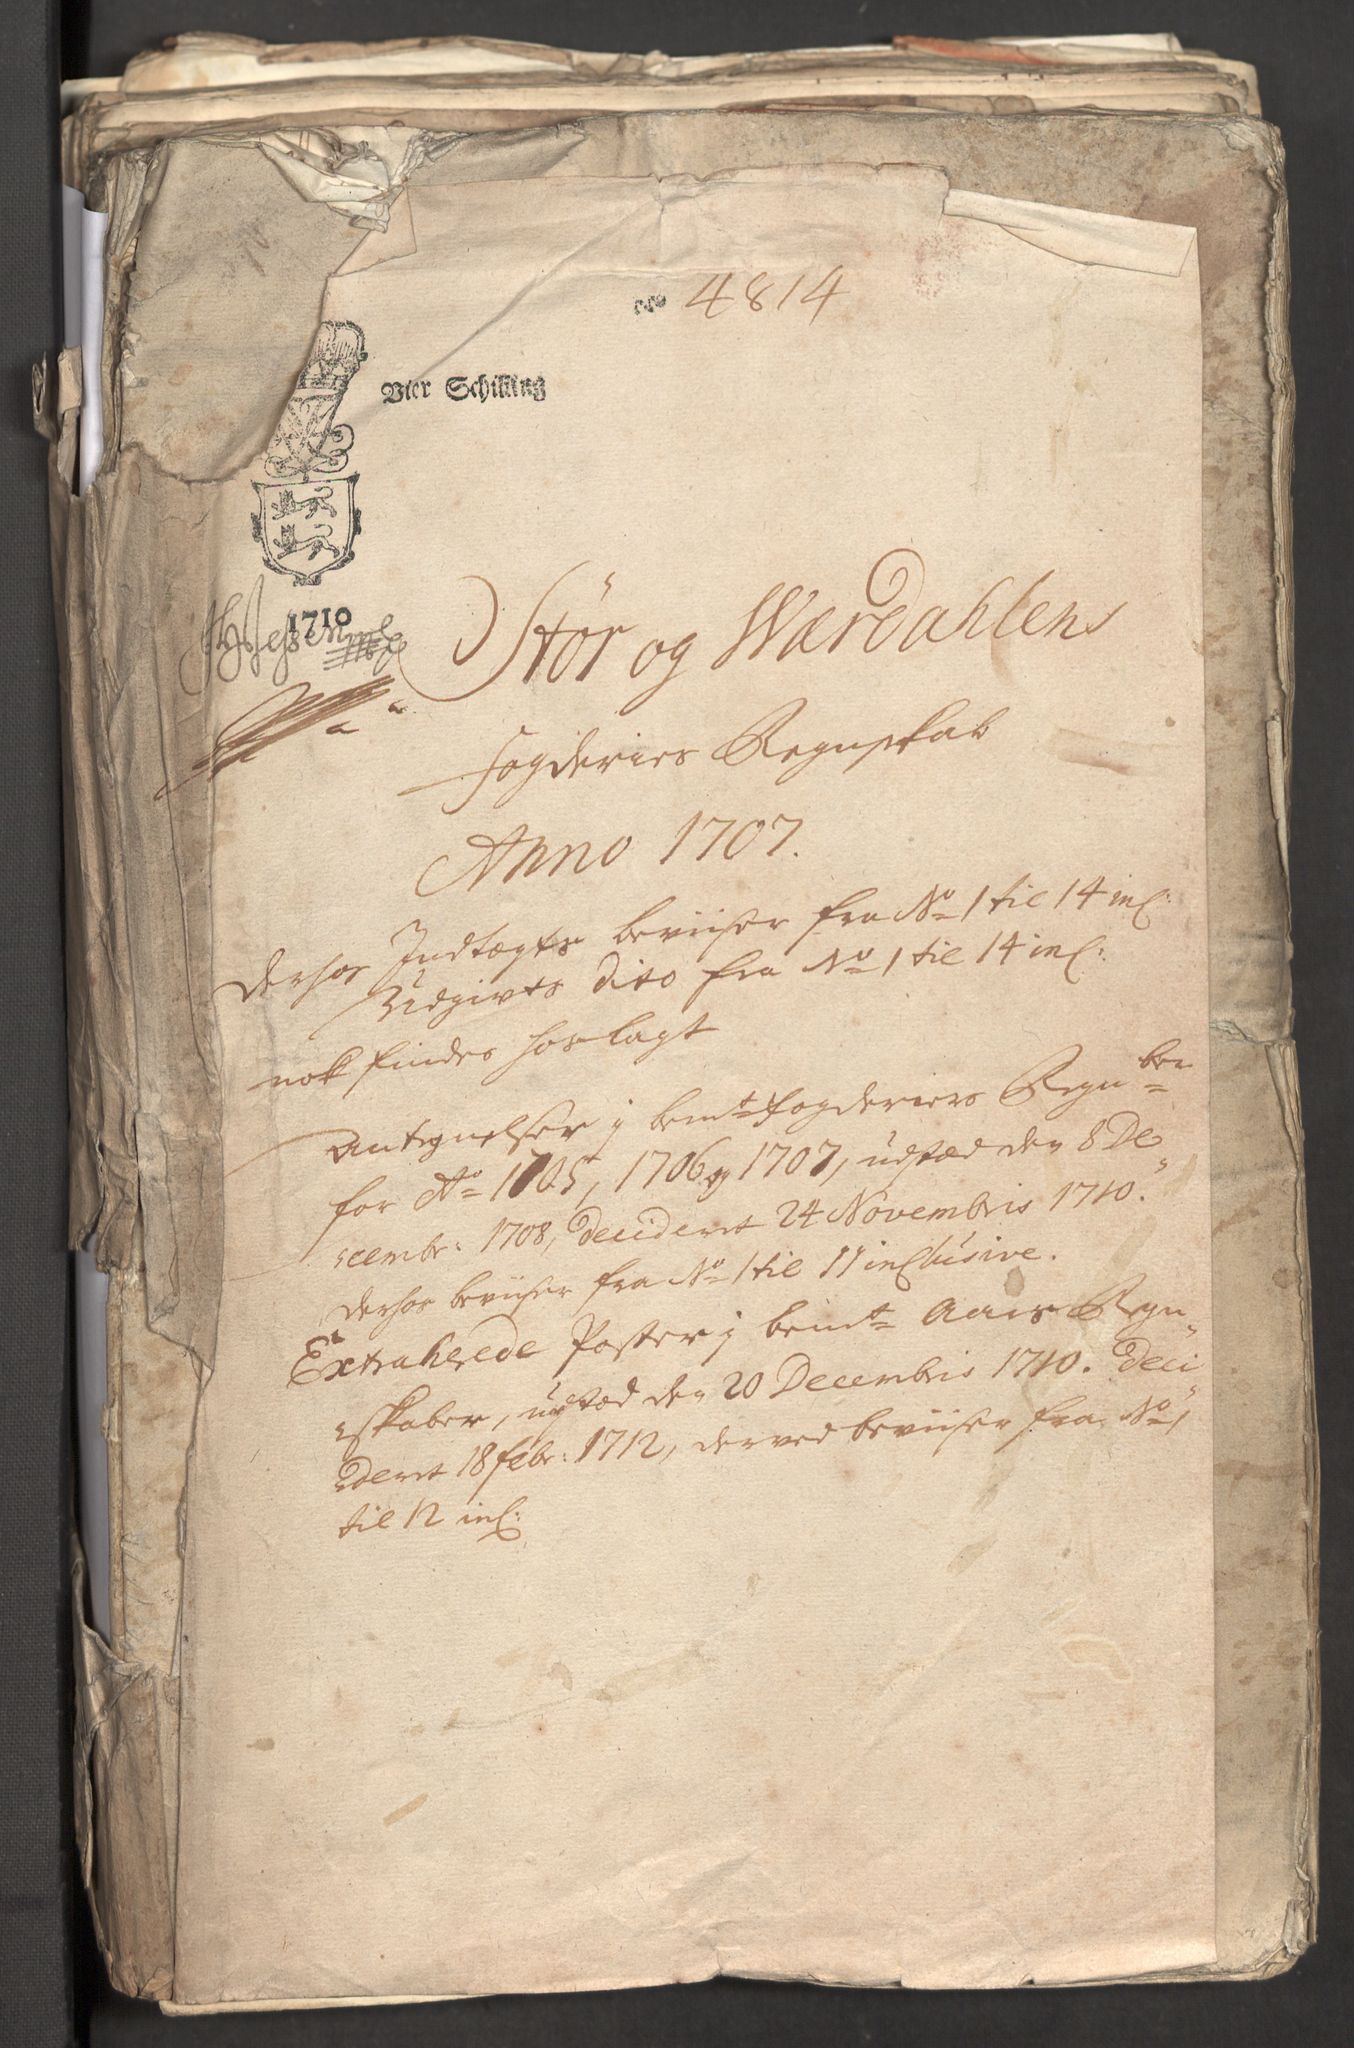 4814
Vier Schilling
1710
Stør og Wærdahlens
fogderies Regnskab
Anno 1707.
derhos Indtægts beviiser fra No 1 til 14 incl:
Udgivts dito fra No 1 til 14 incl:
nok findes hoslagt
Antegnelser j bemte fogderiers Regnber
for Ao 1705, 1706 og 1707, udstæd den 8 De-
cembr: 1708, Decideret 24 Novembris 1710.
derhos beviiser fra No 1 til 11 inclusive.
Extraherede Poster j bemte Aars Regn-
skaber, udstæd den 20 Decembris 1710. Deci-
deret 18 febr: 1712, derved beviiser fra No 1
til 12 incl: